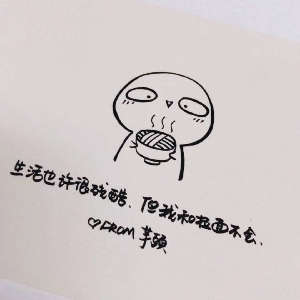 生活也许很残酷、但我和拉面不会、
♡FROM 芋頭